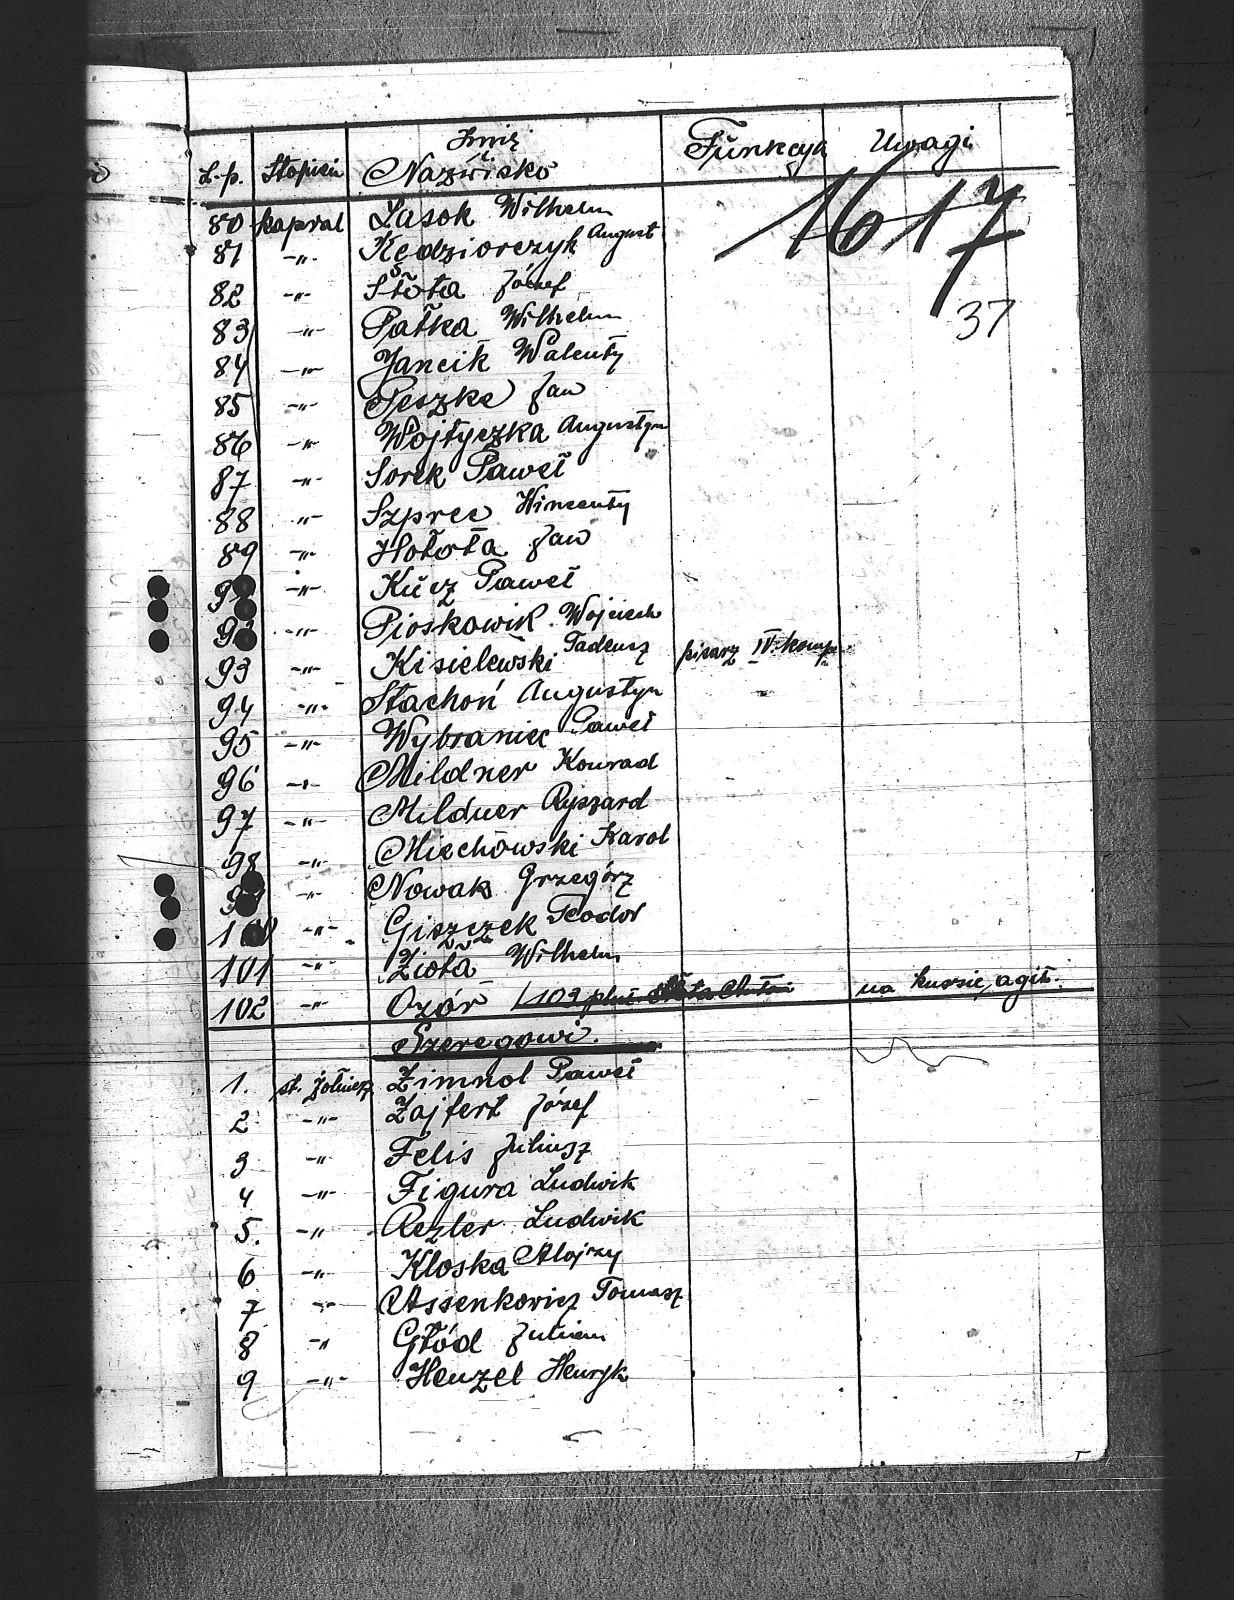 L.p. Stopień Imię i Nazwisko Funkcya Uwagi
1617
37
80 kapral Lasok Wilhelm
81 -"- Kędziorczyk August
82 -"- Słota Józef
83 -"- Patka Wilhelm
84 -"- Jancik Walenty
85 -"- Peszke Jan
86 -"- Wojtyczka Augustyn
87 -"- Sorek Paweł
88 -"- Szprec Wincenty
89 -"- Hołota Jan
-"- Kucz Paweł
-"- Pioskowik Wojciech
93 -"- Kisielewski Tadeusz pisarz IV. komp.
94 -"- Stachoń Augustyn
95 -"- Wybraniec Paweł
96 -"- Mildner Konrad
97 -"- Mildner Ryszard
98 -"- Miechówski Karol
-"- Nowak Grzegórz
-"- Giszczek Teodor
101 -"- Zioła Wilhelm
102 -"- Ozór 103 plut. na kursie agit.
Szeregowi.
1. st. żołnierz Zimnol Paweł
2 -"- Zajfert Józef
3 -"- Felis Juliusz
4 -"- Figura Ludwik
5. -"- Rezler Ludwik
6 -"- Kloska Alojzy
7 -"- Assenkowicz Tomasz
8 -"- Głód Julian
9 -"- Henzel Henryk